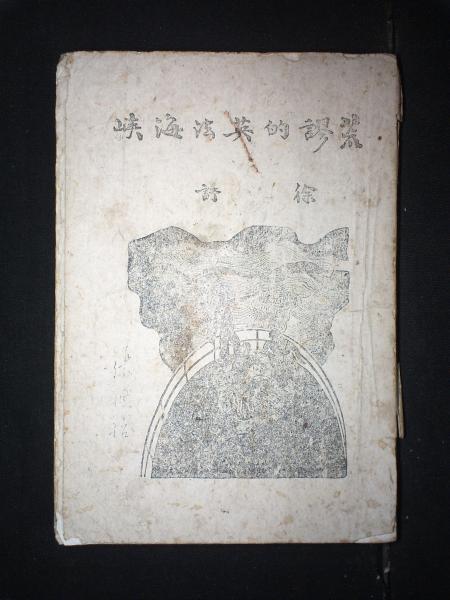 荒謬的英法海峽
徐訏